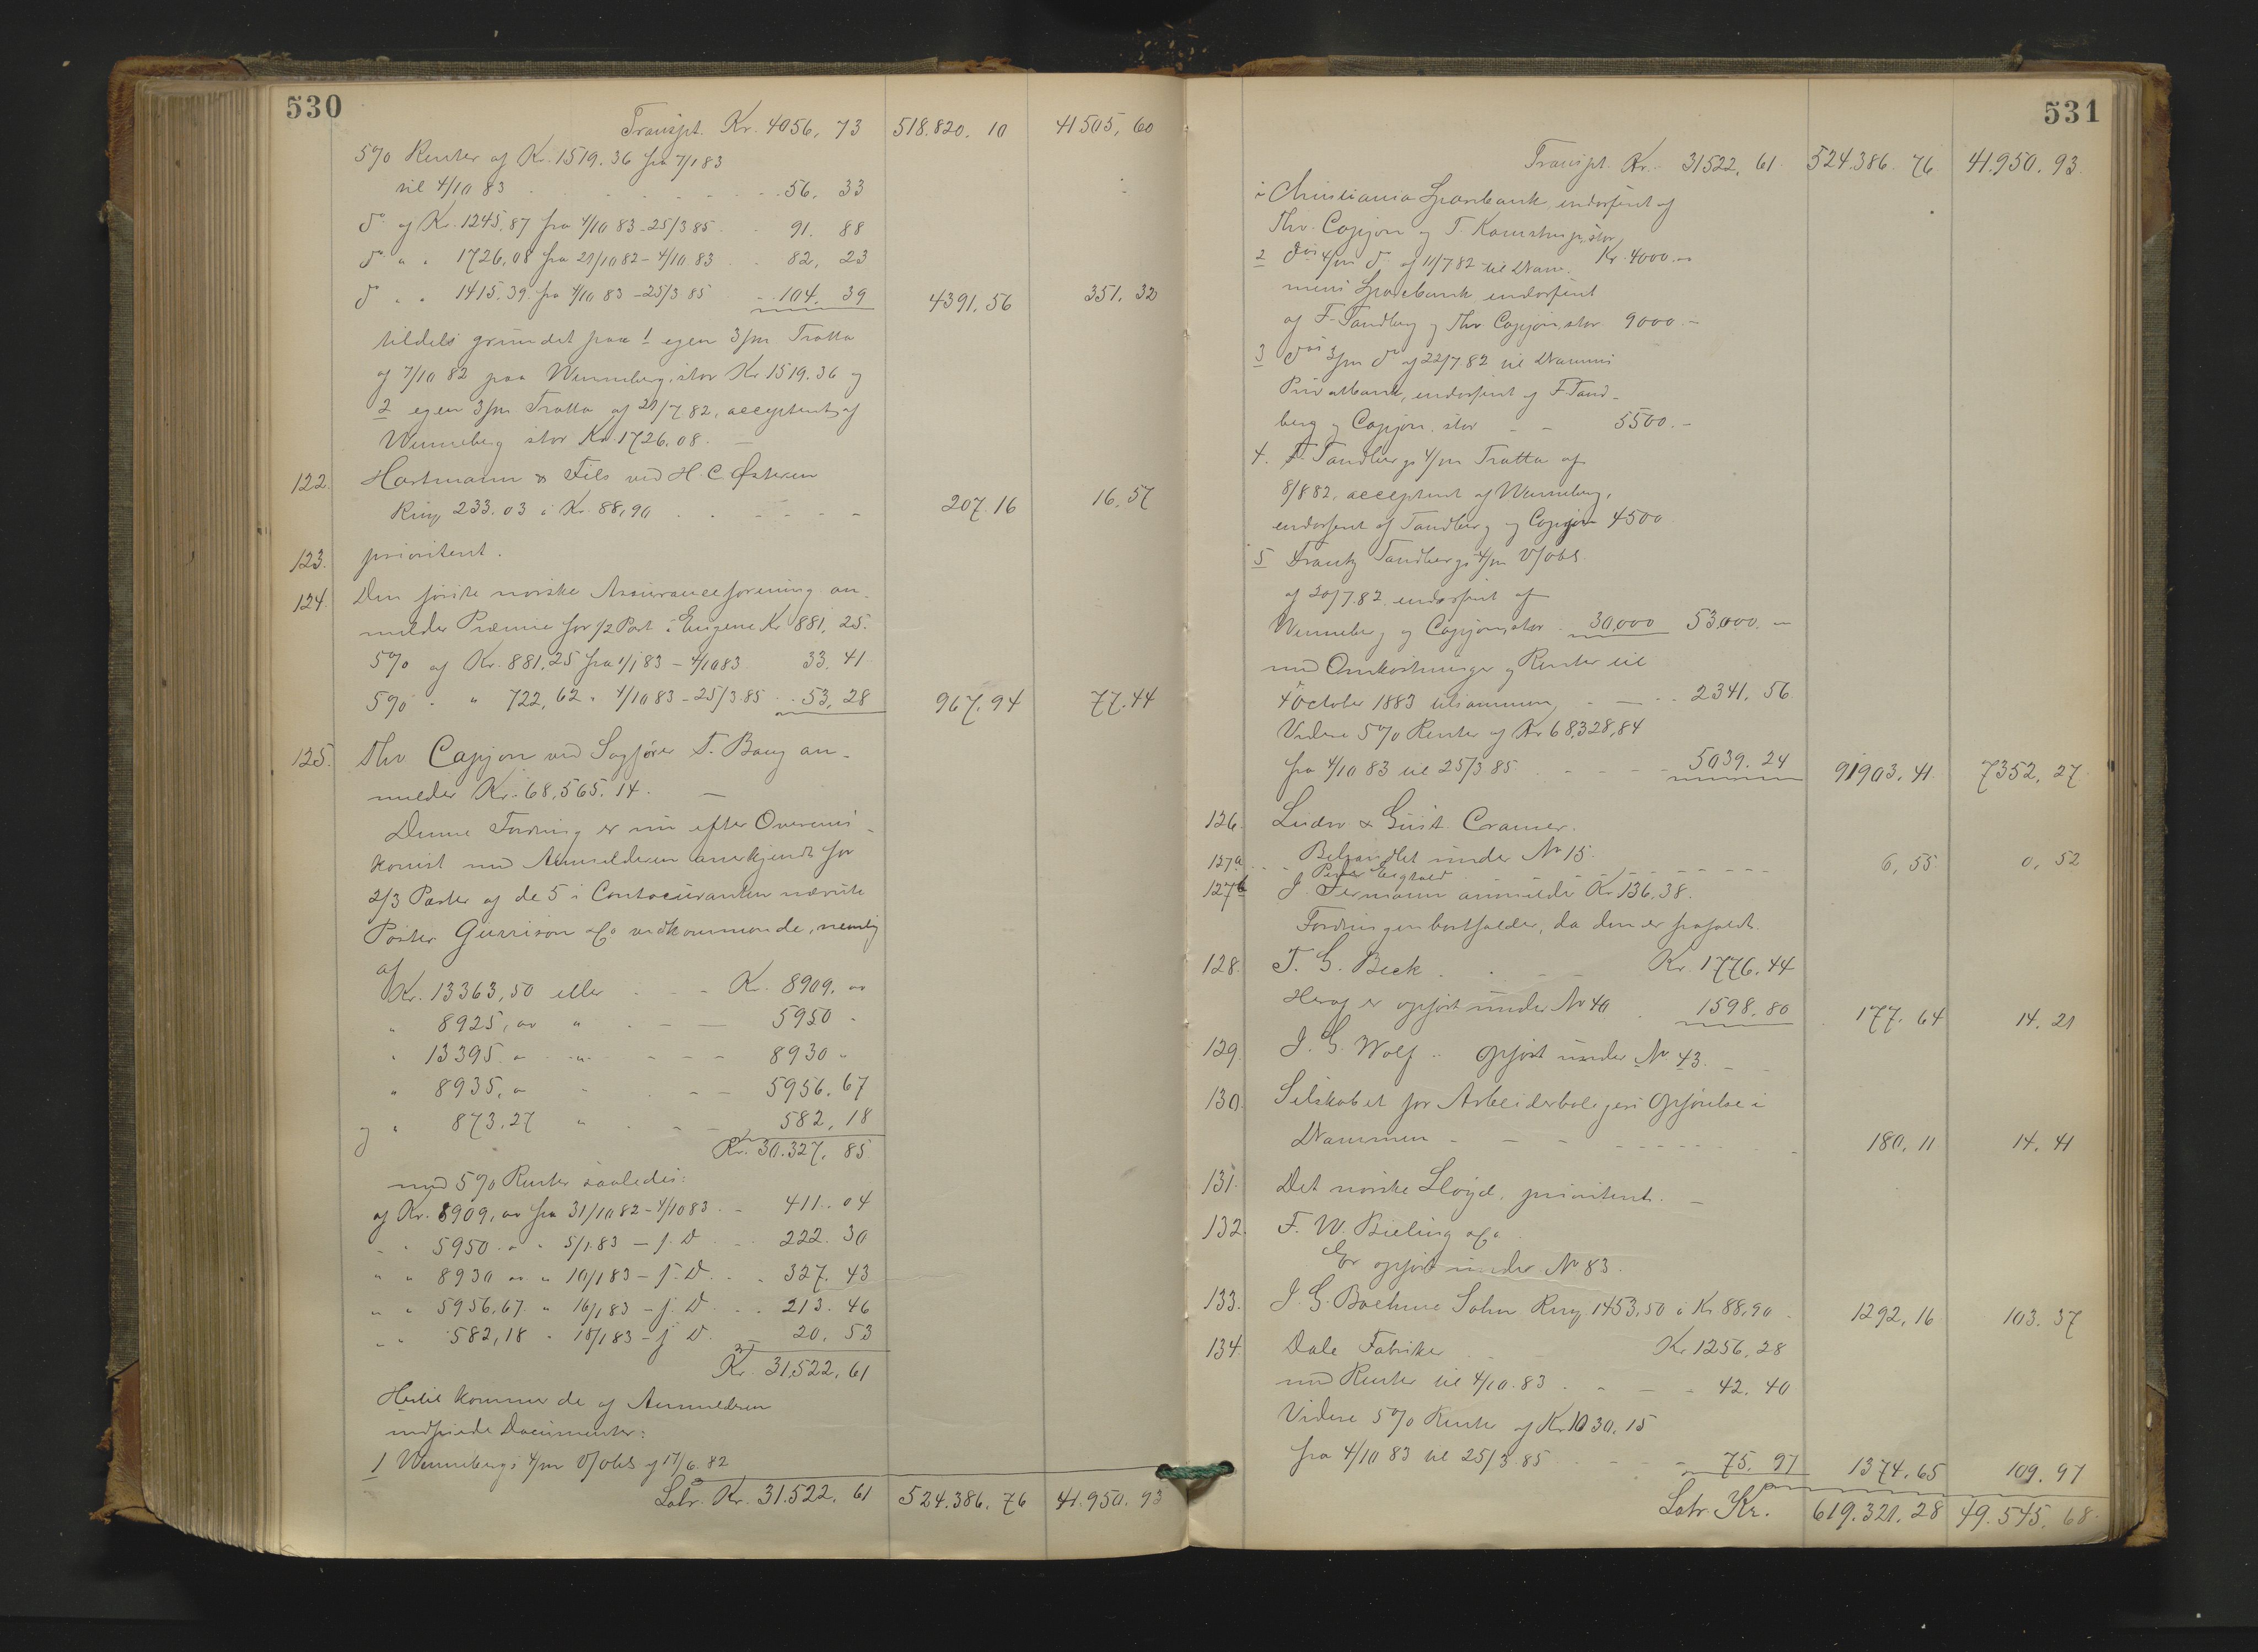 530
Transpt. Kr. 4056, 73 518.820. 10 41505, 60
5% Renter af Kr. 1519.36 fra 7/1 83
til 4/10 83 56. 33
do af Kr. 1245,87 fra 4/10 83 - 25/3 85 91. 88
do " " 1726,08 fra 21/10 82 - 4/10 83 82, 23
do " " 1415.39 fra 4/10 83 - 25/3 85 104. 39 4391. 56 351. 32
tildels grundet paa 1 egen 3/m Tratta
af 7/10 82 paa Wenneberg, stor Kr 1519.36 og
2 egen 3/m Tratta af 21/7 82, acceptert af
Wenneberg stor Kr. 1726.08. —
122. Hartmann & Fils ved H. C. Østeren
Rmy 233.03 à Kr. 88,90 207.16 16,57
123. prioritert.
124. Den første norske Assuranceforening an-
melder Præmie for 1/2 Part i Eugenie Kr 881, 25.
5% af Kr. 881,25 fra 1/1 83 - 4/10 83 33. 41
5% " " 722,62 " 4/10 83 - 25/3 85 53, 28 967. 94 77. 44
125. Thv Capjon ved Sagfører T. Bang an-
melder Kr. 68,565. 14. —
Denne Fordring er nu efter Overens-
komst med Anmelderen anerkjendt for
2/3 Parter af de 5 i Contocuranten nævnte
Poster Gunison & Co vedkommende, nemlig
af
Kr. 13363,50 eller Kr. 8909. "
" 8925, " " 5950 -
" 13395. " " 8930 "
" 8935, " " 5956. 67
og " 873.27 " 582, 18
Kr. 30.327. 85
med 5% Renter saaledes:
af Kr. 8909, " fra 31/10 82 - 4/10 83 411. 04
" " 5950. " " 5/1.83 - s. D 222. 30
" " 8930 " " 10/1 83 - s. D. 327. 43
" " 5956,67. " 16/1 83 - s. D 213. 46
" " 582,18 " 18/1 83 - s D 20. 53
Kr. 31.522, 61
Hertil kommer de af Anmelderen
indfriede Documenter:
1 Wennebergs 4/m V/obl af 17/6. 82
Latr. Kr. 31.522. 61 524.386. 76 41.950. 93
531
Transpt. Kr. 31522, 61 524.386. 76 41.950. 93.
i Christiania Sparebank, endosseret af
Thv. Capjon og T. stor
Kr. 4000. "
2 dos 4/m do af 11/7 82 til Dram-
mens Sparebank, endosseret
af F. Tandberg og Thv. Capjon, stor 9000 -
3 dos 3/m do af 22/7.82 til Drammens
Privatbank, endosseret af F Tand-
berg og Capjon, stor 5500. -
4. F. Tandbergs 4/m Tratta af
8/8 82, acceptert af Wenneberg,
endosseret af Tandberg og Capjon 4500
5 Frantz Tandbergs 4/m V/obl.
af 20/7.82 endosseret af
Wenneberg og Capjon, stor 30,000 53000. "
med Omkostninger og Renter til
4 October 1883 tilsammen 2341. 56
Videre 5% Renter af Kr 68,328,84
fra 4/10 83 til 25/3 85 5039. 24 91903. 41. 7352, 27
126. Ludv & Gust. Cramer.
Behandlet under No 15.
127a Peder 6, 55 0, 52
127b J. Fermann anmelder Kr 136,38.
Fordringen bortfalder, da den er frafaldt.
128. T. G. Beck Kr. 1776. 44
Heraf er opført under No 40 1598. 80 177. 64 14. 21
129. J. G. Wolf " opført under No 43.
130. Selskabet for Arbeiderboligers Opførelse i
Drammen 180, 11 14. 41
131. Det norske Lloyd, prioritert. —
132. F. W. Bieling & Co
Er opført under No 83.
133. J. G. Boehme Sohn Rmy. 1453,50 à Kr 88,90 1292, 16 103. 37
134. Dale Fabriker Kr 1256, 28
med Renter til 4/10. 83 42. 40
Videre 5% Renter af Kr. 1030, 15
fra 4/10 83 til 25/3.85 75. 97 1374,65 109. 97
Latr. Kr. 619.321. 28 49.545. 68.